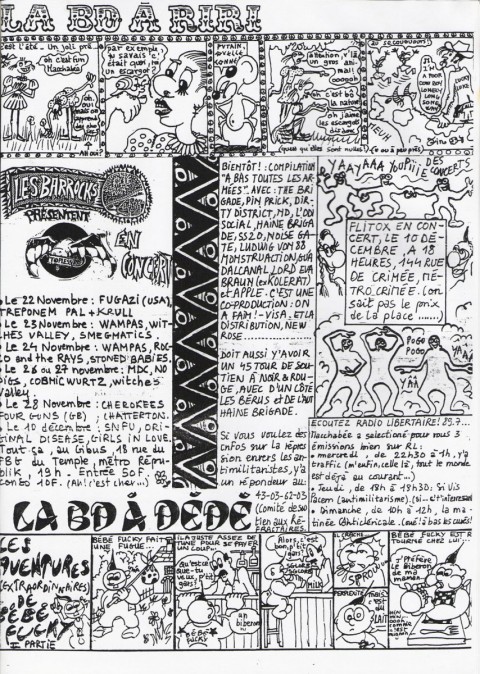 LA BD À RIRI
c'est l'été. Un joli pré...
oh c'est fun
Machaké
Par exemple
tu savais qu'
était quoi, toi
un escargot?
PUTAIN,
QUELLE
CONNE!
attention, v'là
un gros ani-
mal!
oooooo!
oh c'est bô
la nature
oh j'aime
les escargots
dis donc
LUCKY LUKE
(quoiqu'elles sont nulles!)
(ou à peu près)
LES BARROCKS
PRÉSENTENT
EN
CONCERT
Le 22 Novembre : FUGAZI (USA),
TREPONEM PAL + KRULL
Le 23 Novembre : WAMPAS, WIT-
CHES VALLEY, SMEGMATICS.
Le 24 Novembre : WAMPAS, ROC-
CO and the RAYS, STONED BABIES.
Le 26 ou 27 novembre : MDC, NO
DIES, COBMIC WURTZ, witches
Valley.
Le 28 Novembre : CHEROKEES
FOUR GUNS (GB) ; CHATTERTON.
Le 10 décembre : SNFU, ORI-
GINAL DISEASE, GIRLS IN LOVE.
Tout ça, au Gibus, 18 rue du
FBG du Temple, métro Répu-
blik, 19h. Entrée 50F ou
combo 10F. (Ah! c'est cher...)
BIENTÔT! : COMPILATION
"A BAS TOUTES LES AR-
MÉES". AVEC : THE BRI-
GADE, PIN PRICK, DIR-
TY DISTRICT, MD, L'ODI
SOCIAL, HAINE BRIGA-
DE, SS20, NOISE GA-
TE, LUDWIG VON 88
MOMSTRUACTION, GUA
DALCANAL LORD EVA
BRAUN (ex KOLERAT),
et APPLE. C'EST UNE
CO-PRODUCTION : ON
A FAIM! - VISA. ET LA
DISTRIBUTION, NEW
ROSE.
DOIT AUSSI Y'AVOIR
UN 45 TOUR DE SOU-
TIEN À NOIR & ROU-
GE, AVEC D'UN CÔTÉ
LES BÉRUS ET DE L'AUT
HAINE BRIGADE.
Si vous voulez des
infos sur la répres
sion envers les an-
timilitaristes, y'a
un répondeur au:
43-03-62-03
(Comité de Sou
tien aux RÉ-
FRACTAIRES.
YAAYAAA YOUPiiE DES CONCERTS
FLITOX EN CON-
CERT, LE 10 DÉ-
CEMBRE, A 18
HEURES, 144 RUE
DE CRIMÉE, MÉ-
TRO, CRIMÉE. (on
sait pas le prix
de la place ........)
POGO
POGO
YAA
ECOUTEZ RADIO LIBERTAIRE! 89.7...
Machabée a selectioné pour vous 3
émissions bian sur RL:
• mercredi, de 22h30 à 1h, y'a
traffic (m'enfin, celle là, tout le monde
est déjà au courant...)
• Jeudi, de 18h à 19h30; Si Vis
Pacem (antimilitarisme). (si... c'intéressant
• Dimanche, de 10h à 12h, la ma-
tinée Anticléricale. (ouè! à bas les curés!
LA BD À DÉDÉ
LES
AVENTURES
(EXTRAORDINAIRES)
DE
BÉBÉ
FUCKY
II PARTIE
BÉBÉ
UNE FUCKY FAIT
FUGUE...
IL A JUSTE ASSEZ DE
THUNE POUR SE PAYER
UN COUP...
Qu'est ce
que tu
veux, p'tit
gars?
un
biberon
BÉBÉ
FUCKY
Alors, c'est
bon, p'tit
gars?
MILK
IL CRACHE
SPROUTCH
C'EST DU
LAIT
BÉBÉ FUCKY EST RE-
TOURNÉ CHEZ LUI...
J'PRÉFÈRE
LE BIBERON
DE MA
MAMAN